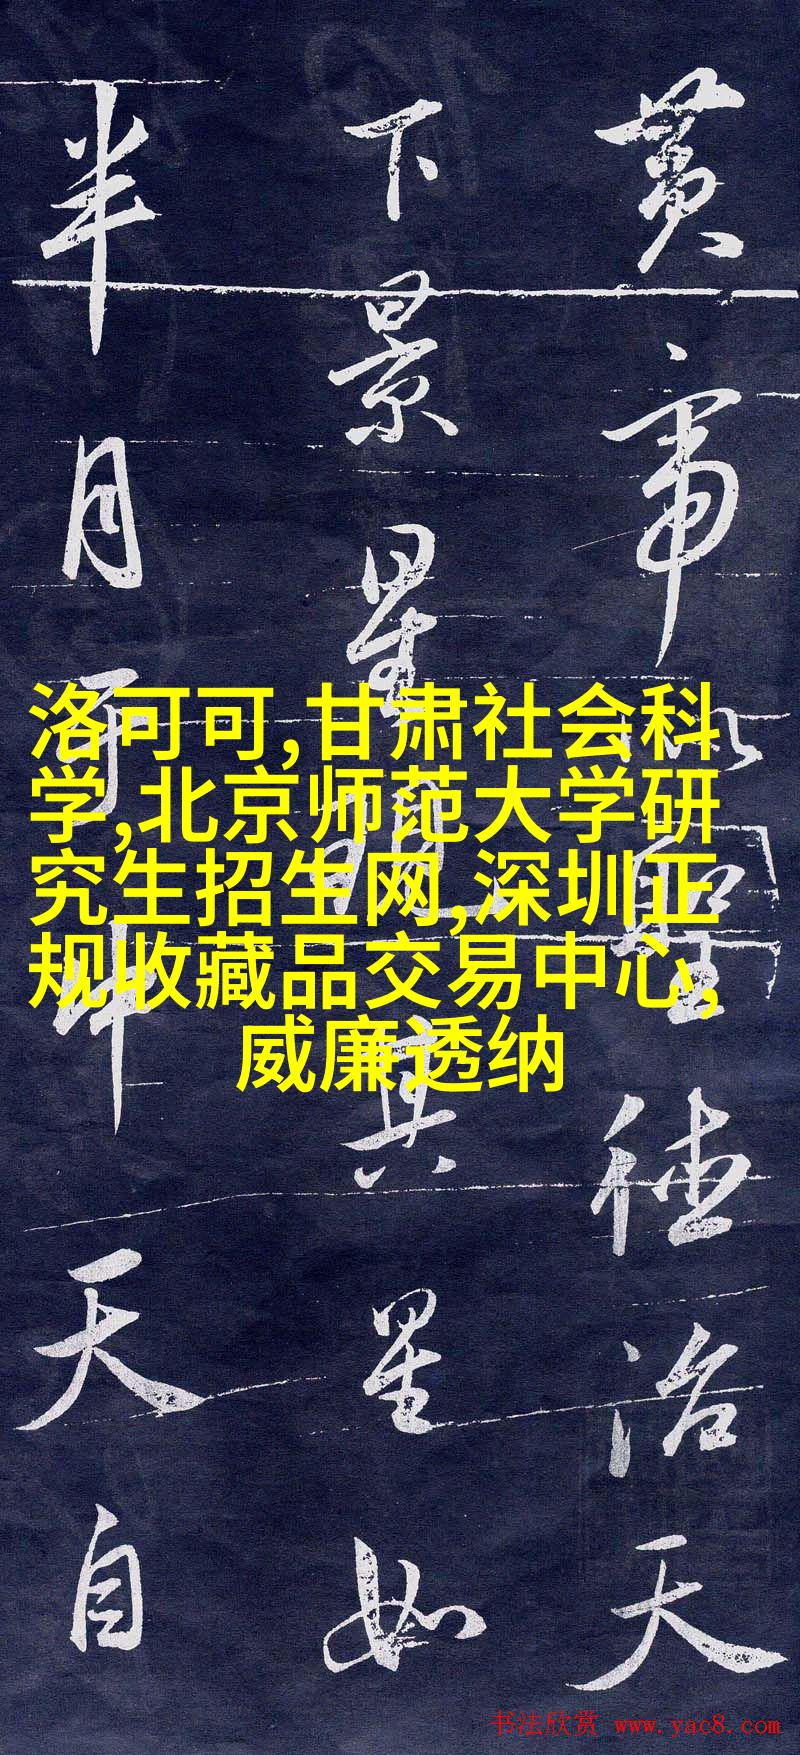 黄帝以聖德治天
下景星其星如
半月天自
洛可可,甘肃社会科
学,北京师范大学研
究生招生网,深圳正
规收藏品交易中心,
威廉透纳
书法欣赏 www.yac8.com